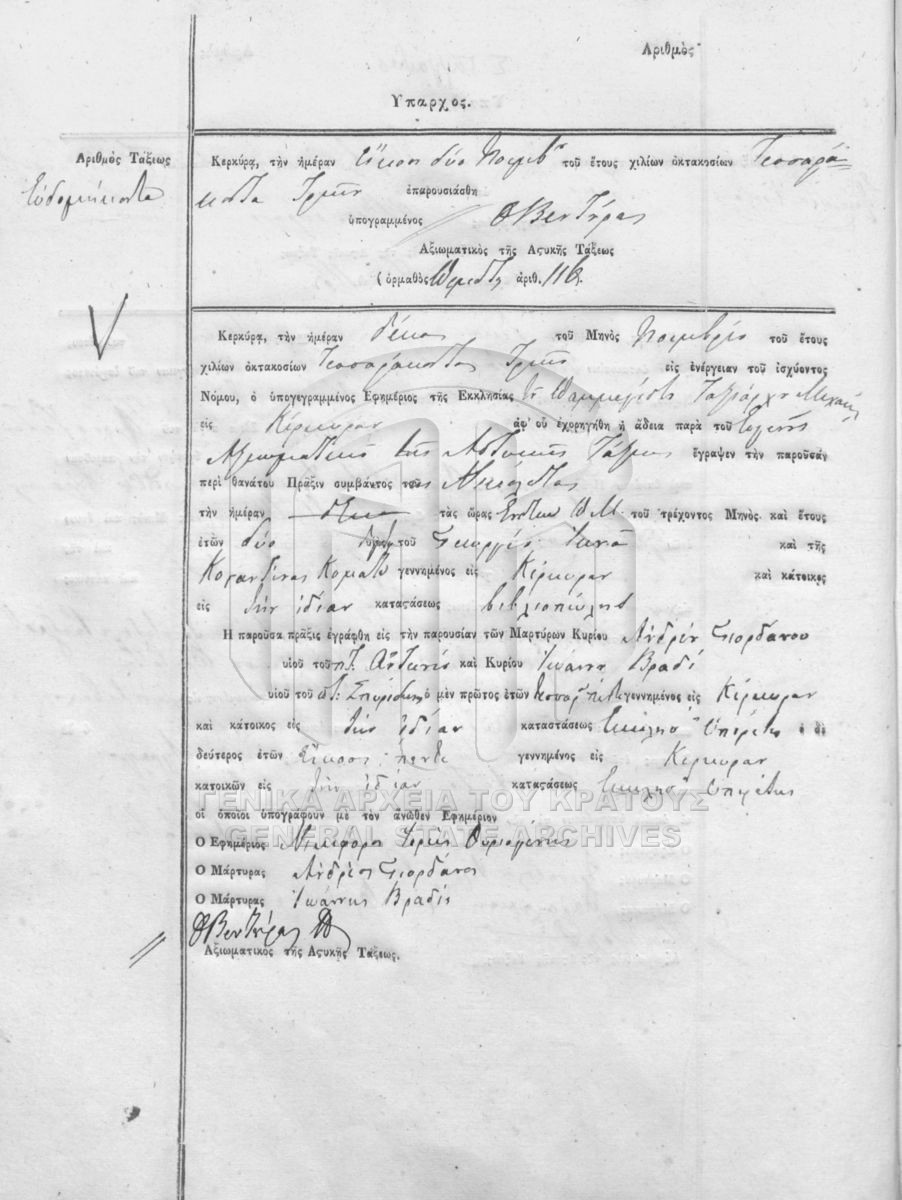 Αριθμὸς
Υπαρχος.
Αριθμὸς Τάξεως
Ευδομήκοντα
Κερκύρα, τὴν ἡμέραν Εἴκοσι δύο Νοεμβ. τοῦ ἔτους χιλίων ὀκτακοσίων Τεσσαρά=
κοντα Τρεῖς ἐπαρουσιάσθη
ὑπογραμμένος Βεντύρας
Αξιωματικὸς τῆς Αςυκῆς Τάξεως
(ὁρμαθὸς ἀριθ. 116).
Κερκύρα, τὴν ἡμέραν δέκα τοῦ Μηνὸς Νοεμβρίου τοῦ ἔτους
χιλίων ὀκτακοσίων Τεσσαράκοντα Τρεῖς εἰς ἐνέργειαν τοῦ ἰσχύοντος
Νόμου, ὁ ὑπογεγραμμένος Εφημέριος τῆς Εκκλησίας Ταξιάρχου
εἰς Κέρκυραν ἀφ᾽ οὗ ἐχορηγήθη ἡ ἄδεια παρὰ τοῦ Ευγενῆς
Αξιωματικὸς τῆς Αστυκῆς Τάξεως ἔγραψεν τὴν παροῦσάν
περὶ θανάτου Πρᾶξιν συμβάντος τοῦ Νικολέτας
τὴν ἡμέραν δέκα τὰς ὥρας Ένδεκα Π.Μ. τοῦ τρέχοντος Μηνὸς καὶ ἔτους
ἐτῶν δύο τοῦ Γεωργίου καὶ τῆς
Κοσταντίνας γεννημένος εἰς Κέρκυραν καὶ κάτοικος
εἰς τὴν ἰδίαν καταςάσεως βιβλιοπώλης
Η παροῦσα πρᾶξις ἐγράφθη εἰς τὴν παρουσίαν τῶν Μαρτύρων Κυρίου Ανδρέου Γιορδάνου
υἱοῦ τοῦ π.τ. Αντωνίου καὶ Κυρίου Ιωάννη Βραδὶ
υἱοῦ τοῦ π.τ. Σπυρίδωνος ὁ μὲν πρῶτος ἐτῶν γεννημένος εἰς Κέρκυραν
καὶ κάτοικος εἰς τὴν ἰδίαν καταστάσεως Εκκλησ. Υπηρέτης ὁ δὲ
δεύτερος ἐτῶν Είκοσι πέντε γεννημένος εἰς Κέρκυραν
κατοικῶν εἰς τὴν ἰδίαν καταςάσεως Εκκλησ. Υπηρέτης
οἱ ὁποῖοι ὑπογράφουν μὲ τὸν ἄνωθεν Εφημέριον
Ο Εφημέριος Νικηφόρος Ιερεὺς
Ο Μάρτυρας Ανδρέας Γιορδάνος
Ο Μάρτυρας Ιωάννης Βραδὶς
Βεντύρας
Αξιωματικὸς τῆς Αςυκῆς Τάξεως.
ΓΕΝΙΚΑ ΑΡΧΕΙΑ ΤΟΥ ΚΡΑΤΟΥΣ
GENERAL STATE ARCHIVES